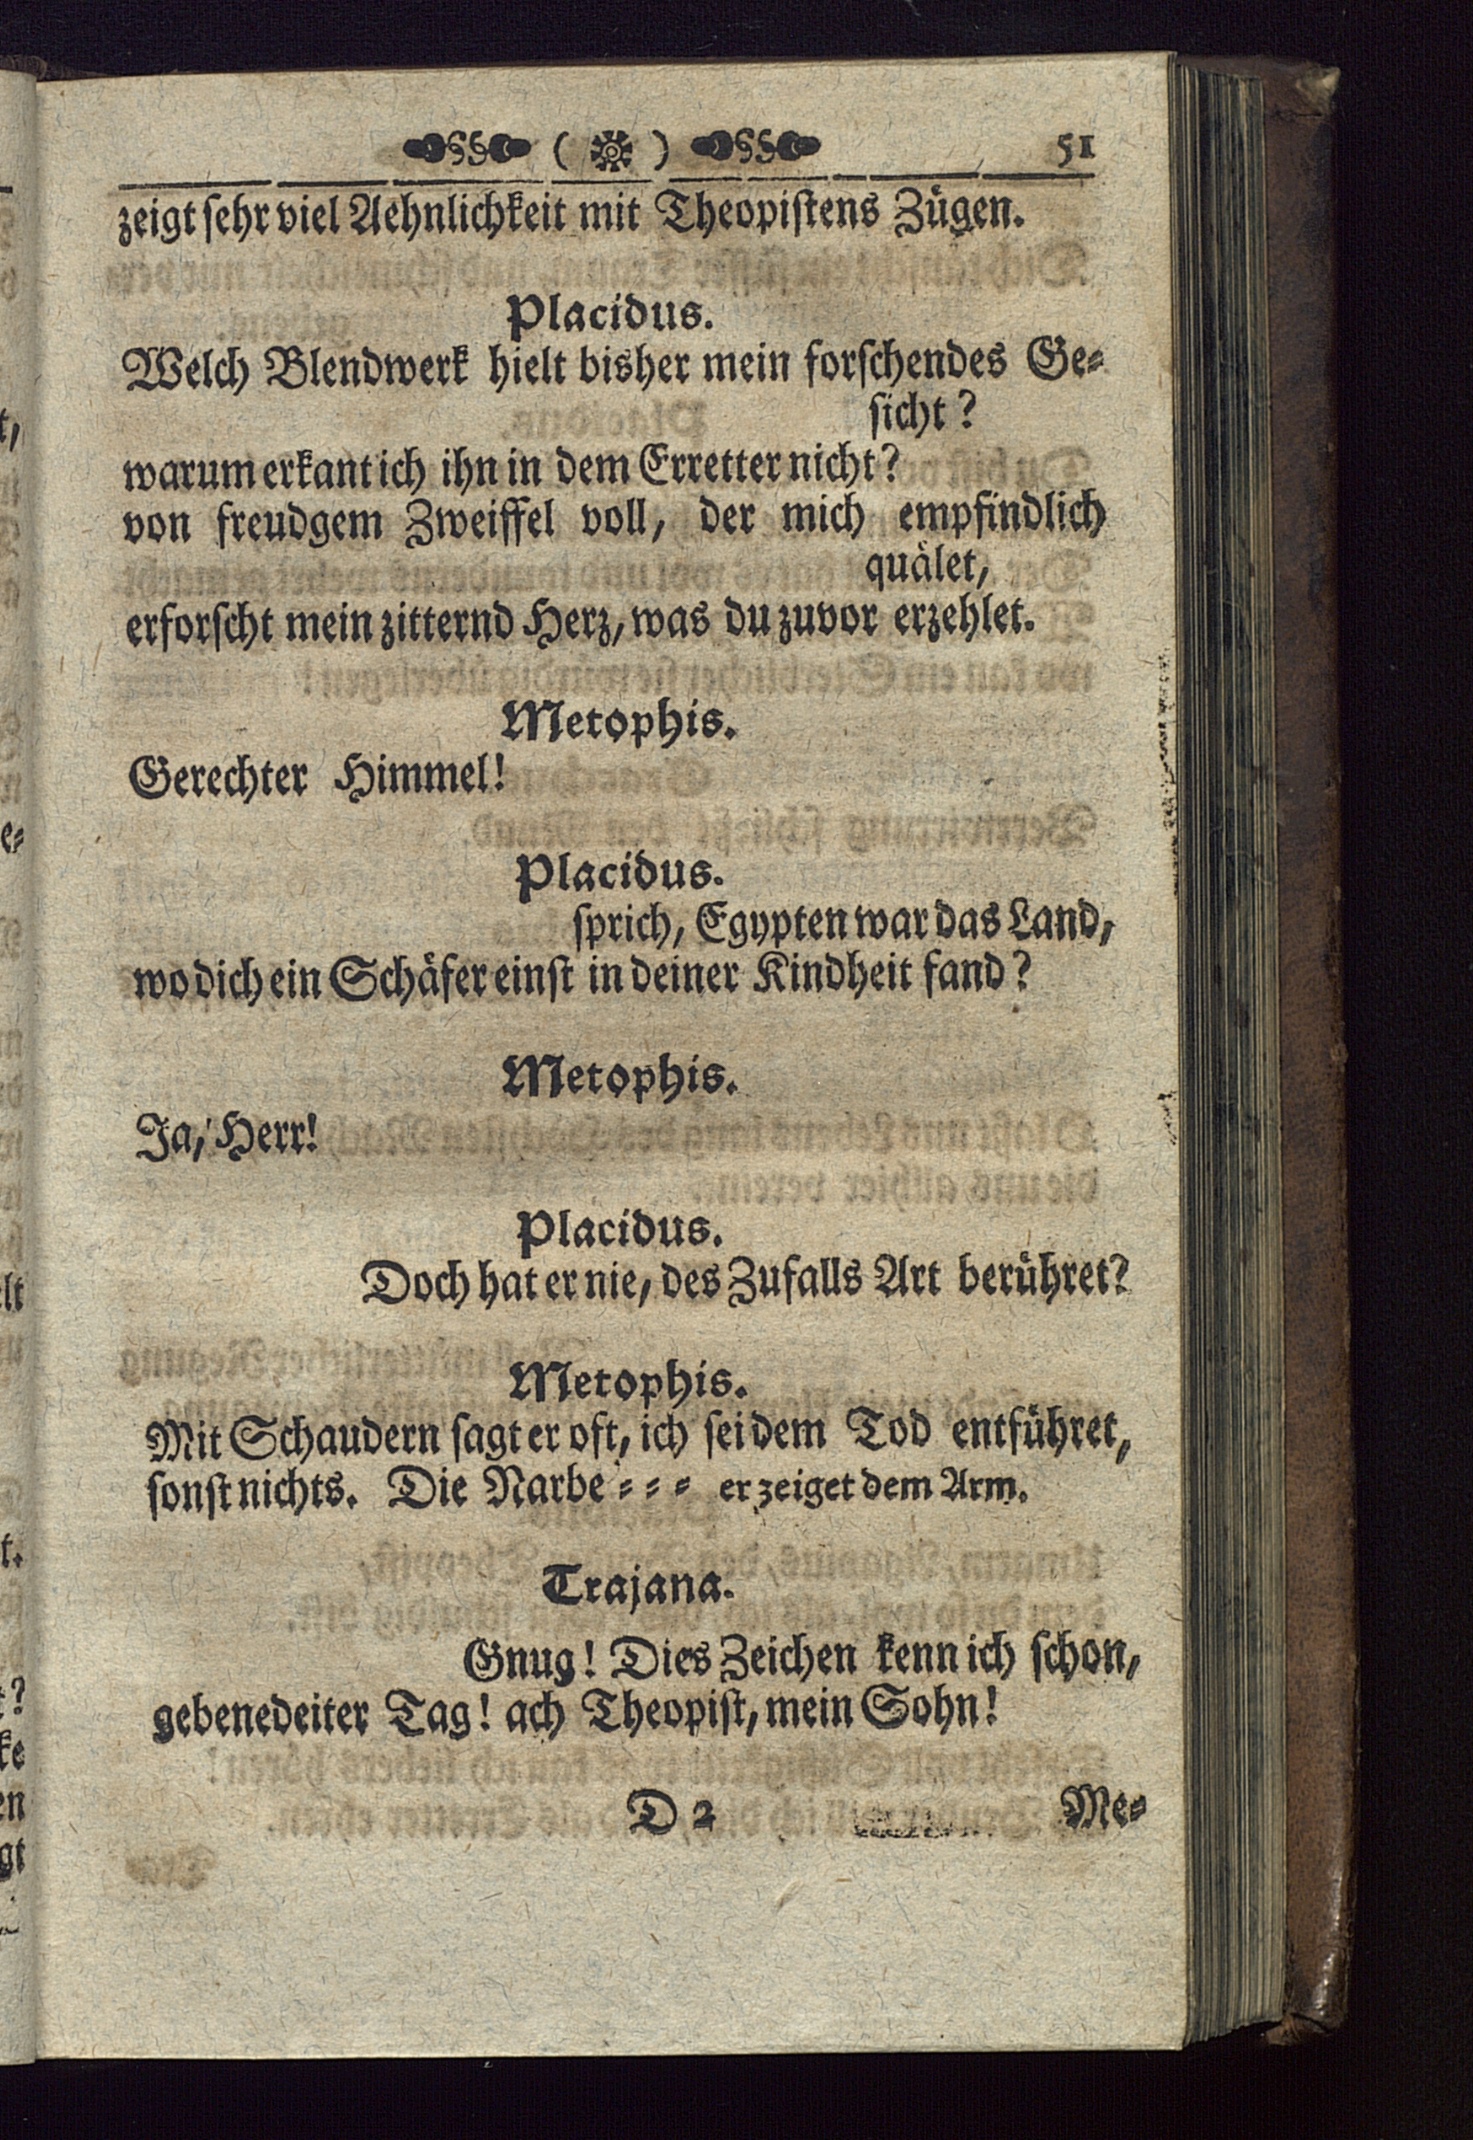 ( ) 51
zeigt sehr viel Aehnlichkeit mit Theopistens Zügen.
Placidus.
Welch Blendwerk hielt bisher mein forschendes Ge-
sicht?
warum erkant ich ihn in dem Erretter nicht?
von freudgem Zweiffel voll, der mich empfindlich
quälet,
erforscht mein zitternd Herz, was du zuvor erzehlet.
Metophis.
Gerechter Himmel!
Placidus.
sprich, Egypten war das Land,
wo dich ein Schäfer einst in deiner Kindheit fand?
Metophis.
Ja, Herr!
Placidus.
Doch hat er nie, des Zufalls Art berühret?
Metophis.
Mit Schaudern sagt er oft, ich sei dem Tod entführet,
sonst nichts. Die Narbe - - - er zeiget dem Arm.
Trajana.
Gnug! Dies Zeichen kenn ich schon,
gebenedeiter Tag! ach Theopist, mein Sohn!
D 2 Me-